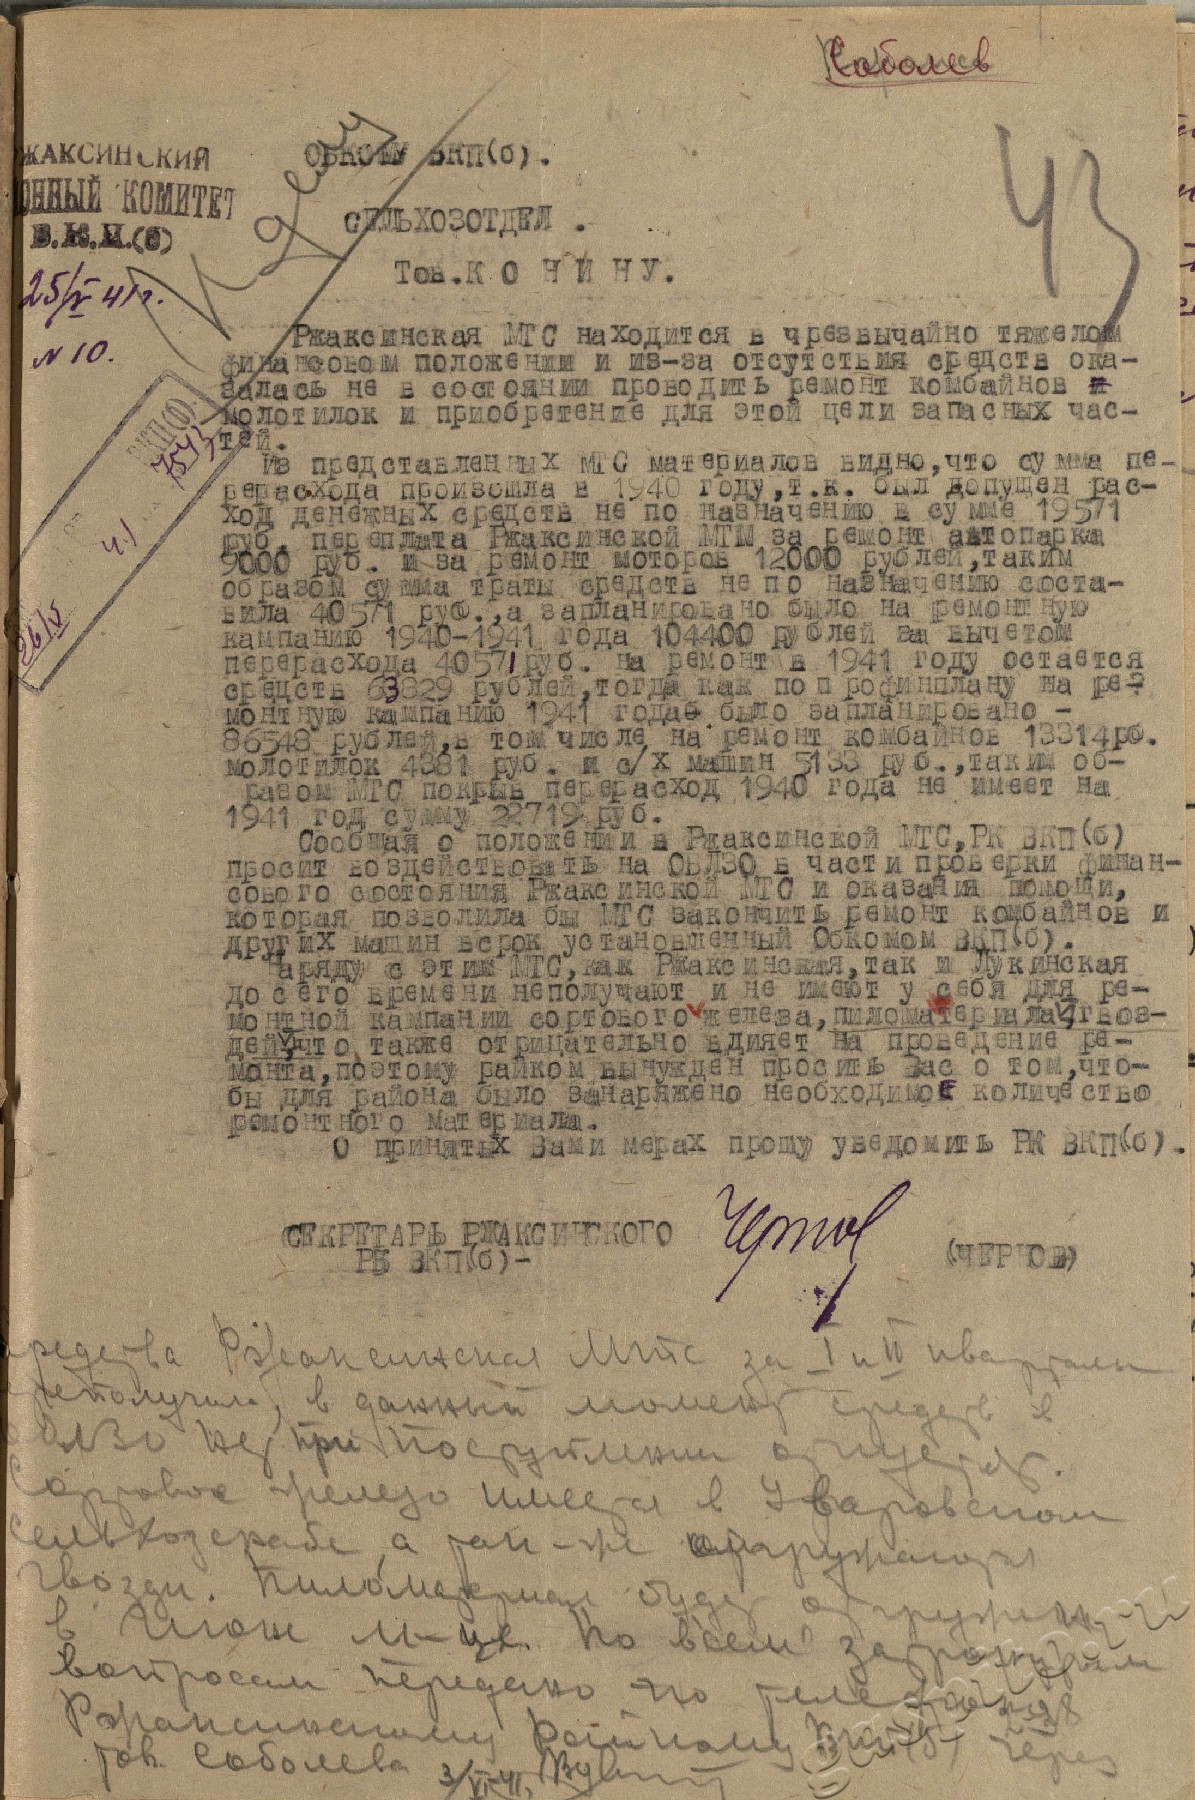 Соболев
ЖАКСИНСКИЙ
ОННЫЙ КОМИТЕТ
В.К.П.(б)
25/V 41 г.
N 10.
К делу
43
ОБКОМУ ВКП(б).
СЕЛЬХОЗОТДЕЛ .
Тов.К О Ч И Н У.
ВКП(б)
7543
41
26/V
Ржаксинская МТС находится в чрезвычайно тяжелом
финансовом положении и из-за отсутствия средств ока-
залась не в состоянии проводить ремонт комбайнов и
молотилок и приобретение для этой цели запасных час-
тей.
Из представленных МТС материалов видно,что сумма пе-
рерасхода произошла в 1940 году,т.к. был допущен рас-
ход денежных средств не по назначению в сумме 19571
руб. переплата Ржаксинской МТМ за ремонт автопарка
9000 руб. и за ремонт моторов 12000 рублей,таким
образом сумма траты средств не по назначению соста-
вила 40571 руб.,а запланировано было на ремонтную
кампанию 1940-1941 года 104400 рублей за вычетом
перерасхода 40571руб. на ремонт в 1941 году остается
средств 63829 рублей,тогда как по профинплану на ре-
монтную кампанию 1941 года было запланировано -
86548 рублей,в том числе на ремонт комбайнов 13314рб.
молотилок 4381 руб. и с/х машин 5133 руб.,таким об-
разом МТС покрыв перерасход 1940 года не имеет на
1941 год сумму 22719 руб.
Сообщая о положении в Ржаксинской МТС,РК ВКП(б)
просит воздействовать на ОБЛЗО в части проверки финан-
сового состояния Ржаксинской МТС и оказания помощи,
которая позволила бы МТС закончить ремонт комбайнов и
других машин в срок установленный Обкомом ВКП(б).
Наряду с этим МТС,как Ржаксинская,так и Лукинская
до сего времени неполучают и не имеют у себя для ре-
монтной кампании сортового железа,пиломатериала,гвоз-
дей,что также отрицательно влияет на проведение ре-
монта,поэтому райком вынужден просить Вас о том,что-
бы для района было занаряжено необходимое количество
ремонтного материала.
О принятых Вами мерах прошу уведомить РК ВКП(б).
СЕКРЕТАРЬ РЖАКСИНСКОГО
РК ВКП(б)-
Чернов
(ЧЕРНОВ)
средства Ржаксинская МТС за I и II кварталы
получила, в данный момент средств в
ОблЗО нет при поступлении отпустят.
Сортовое железо имеется в Уваровском
сельхозснабе, а так-же отгружаются
гвозди. Пиломатериал будет отгружен
в июне м-це. По всем затронутым
вопросам передано по телефону
Ржаксинскому Райкому ВКП(б) через
тов. Соболева
3/VI-41.